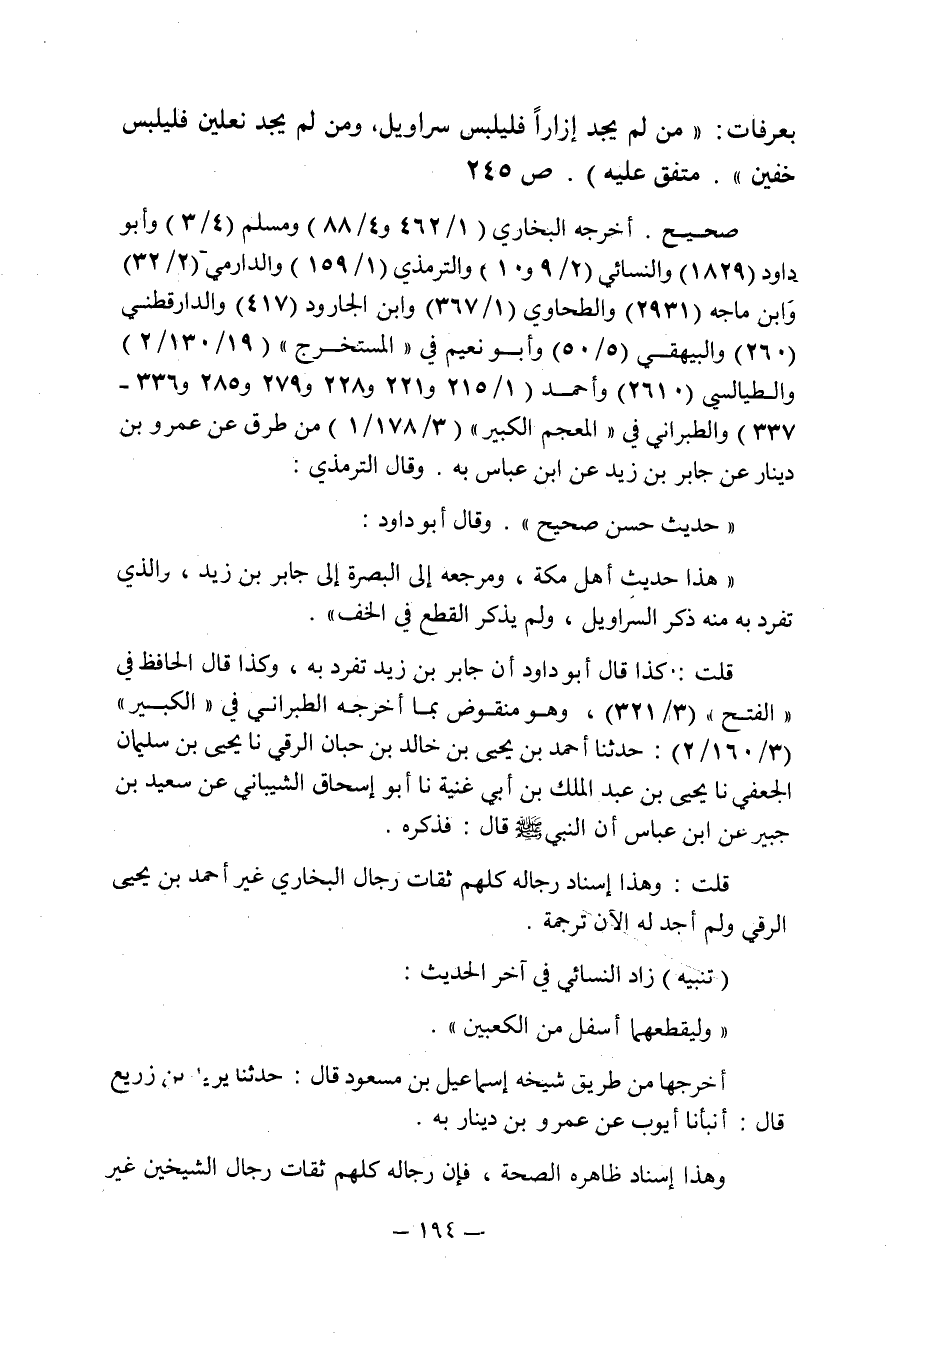 بعرفات: « من لم يجد إزاراً فليلبس سراويل، ومن لم يجد نعلين فليلبس
خفين » . متفق عليه ) . ص ٢٤٥
صحيح . أخرجه البخاري ( ١/ ٤٦٢ و٤/ ٨٨ ) ومسلم (٤/ ٣ ) وأبو
داود (١٨٢٩) والنسائي (٢/ ٩ و١٠ ) والترمذي (١/ ١٥٩ ) والدارمي (٢/ ٣٢)
وابن ماجه (٢٩٣١) والطحاوي (١/ ٣٦٧) وابن الجارود (٤١٧) والدارقطني
(٢٦٠) والبيهقي (٥/ ٥٠) وأبو نعيم في « المستخرج » ( ١٩/ ١٣٠/ ٢ )
والطيالسي (٢٦١٠) وأحمد ( ١/ ٢١٥ و٢٢١ و٢٢٨ و٢٧٩ و٢٨٥ و٣٣٦ -
٣٣٧ ) والطبراني في « المعجم الكبير » ( ٣/ ١٧٨/ ١ ) من طرق عن عمرو بن
دينار عن جابر بن زيد عن ابن عباس به . وقال الترمذي :
« حديث حسن صحيح » . وقال أبو داود :
« هذا حديث أهل مكة ، ومرجعه إلى البصرة إلى جابر بن زيد ، والذي
تفرد به منه ذكر السراويل ، ولم يذكر القطع في الخف» .
قلت : كذا قال أبو داود أن جابر بن زيد تفرد به ، وكذا قال الحافظ في
« الفتح » (٣/ ٣٢١) ، وهو منقوض بما أخرجه الطبراني في « الكبير »
(٣/ ١٦٠/ ٢) : حدثنا أحمد بن يحيى بن خالد بن حبان الرقي نا يحيى بن سليمان
الجعفي نا يحيى بن عبد الملك بن أبي غنية نا أبو إسحاق الشيباني عن سعيد بن
جبير عن ابن عباس أن النبي ﷺ قال : فذكره .
قلت : وهذا إسناد رجاله كلهم ثقات رجال البخاري غير أحمد بن يحيى
الرقي ولم أجد له الآن ترجمة .
( تنبيه ) زاد النسائي في آخر الحديث :
« وليقطعهما أسفل من الكعبين » .
أخرجها من طريق شيخه إسماعيل بن مسعود قال : حدثنا يزيد بن زريع
قال : أنبأنا أيوب عن عمرو بن دينار به .
وهذا إسناد ظاهره الصحة ، فإن رجاله كلهم ثقات رجال الشيخين غير
— ١٩٤ —